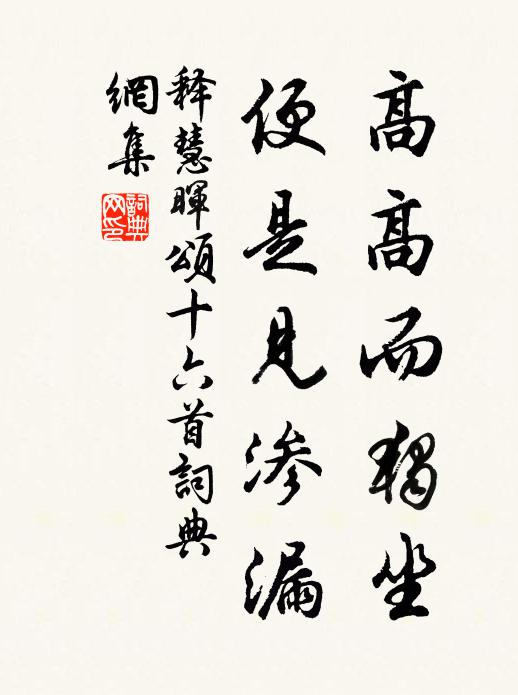 高高而独坐
便是見渗漏
释慧暉頌十六首詞典
網集
詞典网印